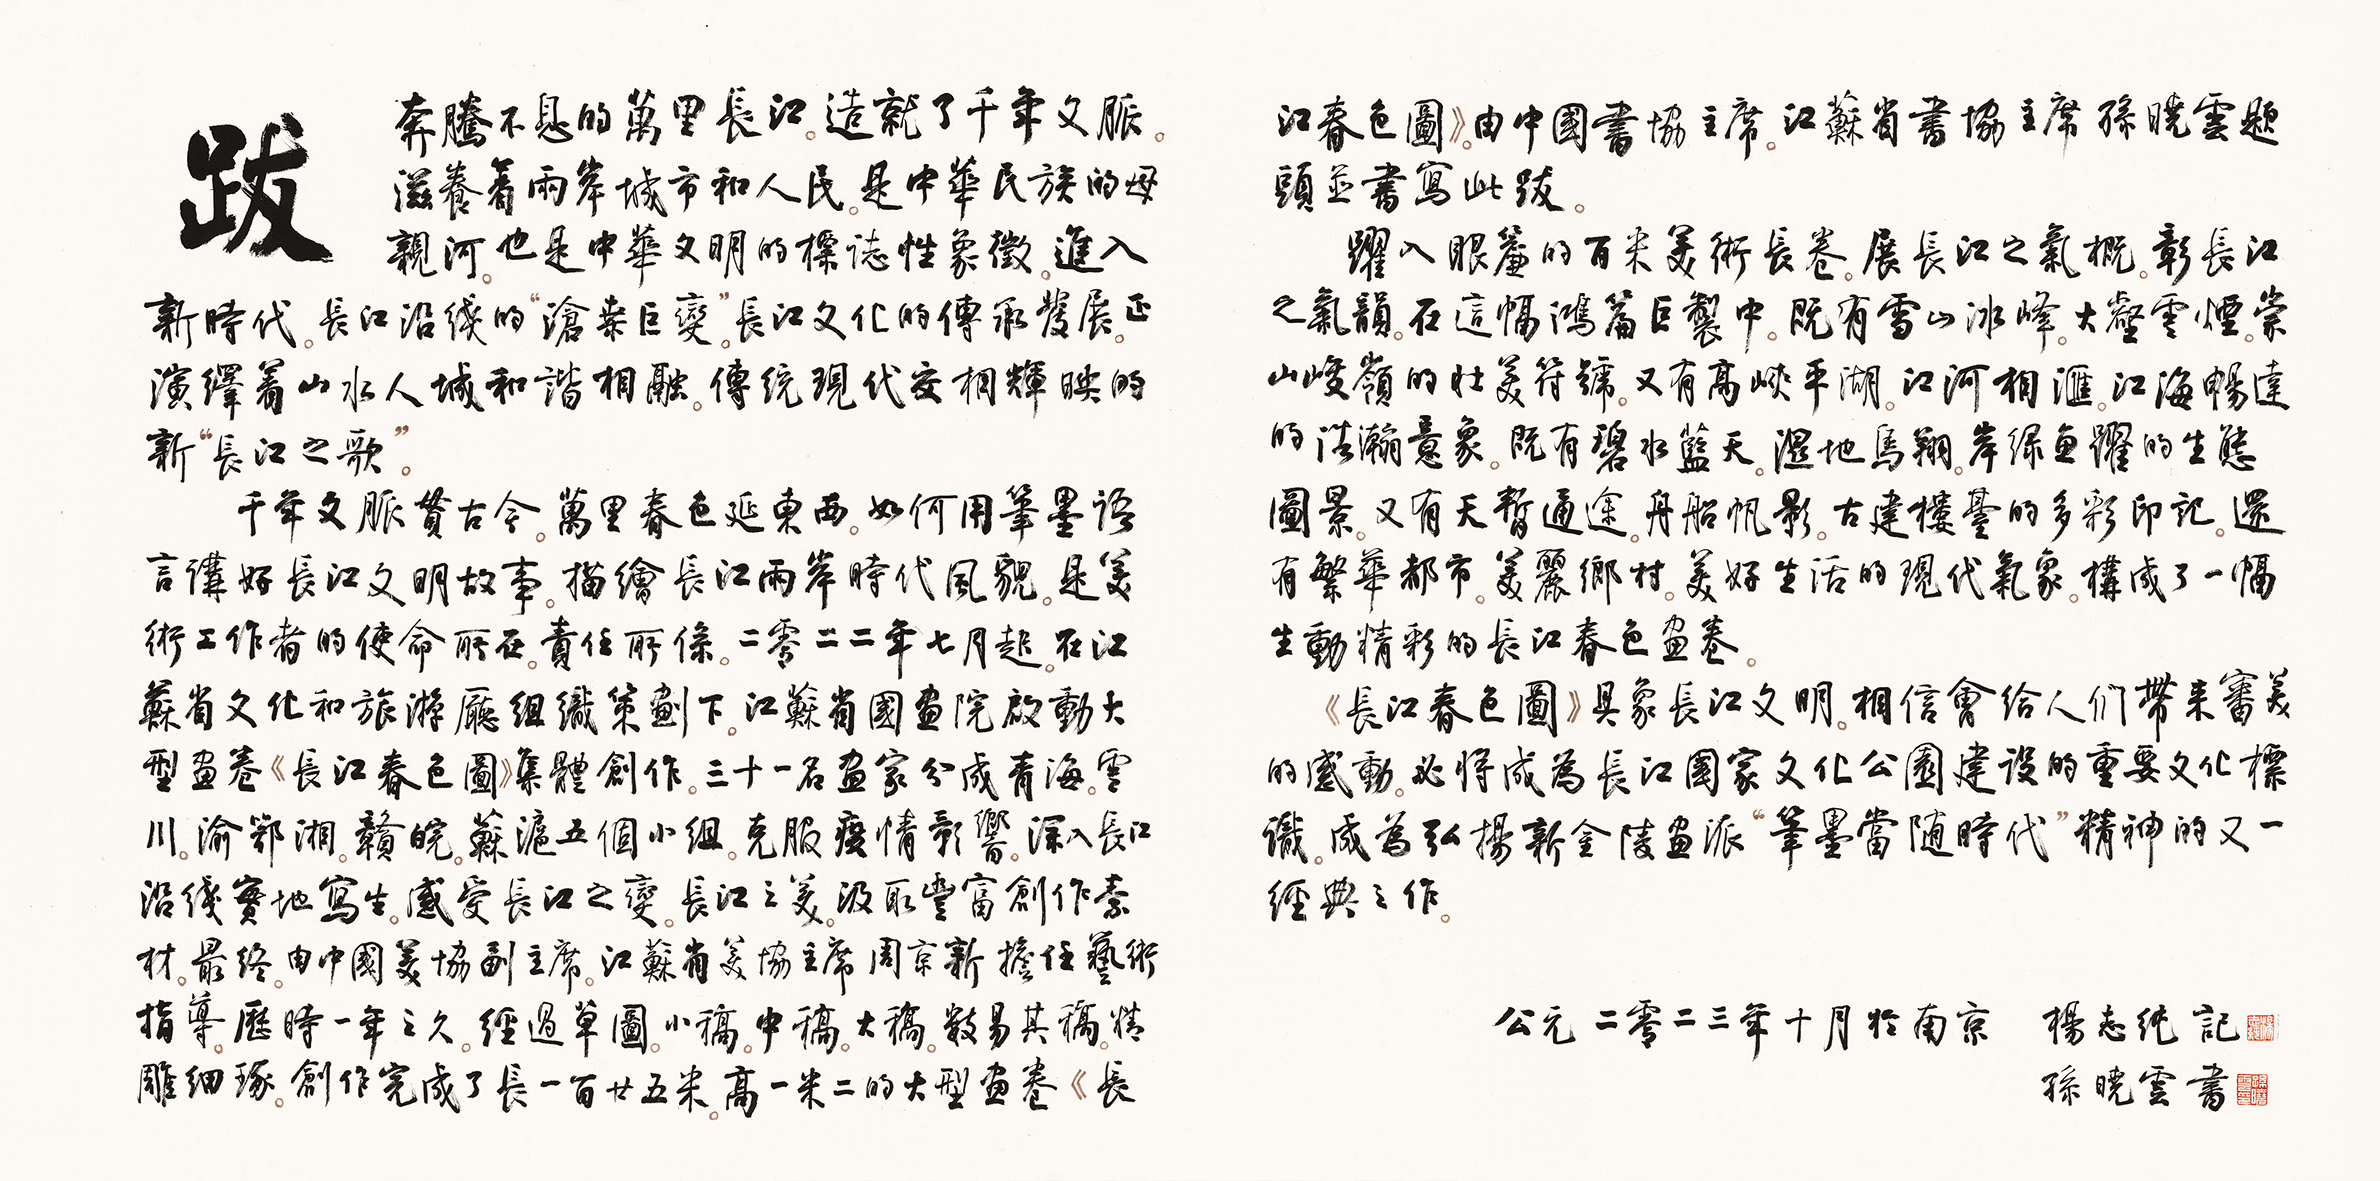 跋
奔騰不息的萬里長江。造就了千年文脈。
滋養着兩岸城市和人民。是中華民族的母
親河。也是中華文明的標誌性象徵。進入
新時代。長江沿綫的“滄桑巨變”。長江文化的傳承發展。正
演繹着山水人城和諧相融。傳統現代交相輝映的
新“長江之歌”。
千年文脈貫古今。萬里春色延東西。如何用筆墨語
言講好長江文明故事。描繪長江兩岸時代風貌。是美
術工作者的使命所在。責任所係。二零二二年七月起。在江
蘇省文化和旅游廳組織策劃下。江蘇省國畫院啟動大
型畫卷《長江春色圖》集體創作。三十一名畫家分成青海。雲
川。渝鄂湘。贛皖。蘇滬五個小組。克服疫情影響。深入長江
沿綫實地寫生。感受長江之變。長江之美。汲取豐富創作素
材。最終。由中國美協副主席。江蘇省美協主席周京新擔任藝術
指導。歷時一年之久。經過草圖。小稿。中稿。大稿。數易其稿。精
雕細琢。創作完成了長一百廿五米。高一米二的大型畫卷《長
江春色圖》。由中國書協主席。江蘇省書協主席孫曉雲題
頭並書寫此跋。
躍入眼簾的百米美術長卷。展長江之氣概。彰長江
之氣韻。在這幅鴻篇巨製中。既有雪山冰峰。大壑雲煙。崇
山峻嶺的壯美符號。又有高峽平湖。江河相滙。江海暢達
的浩瀚意象。既有碧水藍天。濕地鳥翔。岸綠魚躍的生態
圖景。又有天塹通途。舟船帆影。古建樓臺的多彩印記。還
有繁華都市。美麗鄉村。美好生活的現代氣象。構成了一幅
生動精彩的長江春色畫卷。
《長江春色圖》具象長江文明。相信會給人们帶来審美
的感動。必將成為長江國家文化公園建設的重要文化標
識。成為弘揚新金陵畫派“筆墨當随時代”精神的又一
經典之作。
公元二零二三年十月於南京 楊志純記
孫曉雲書